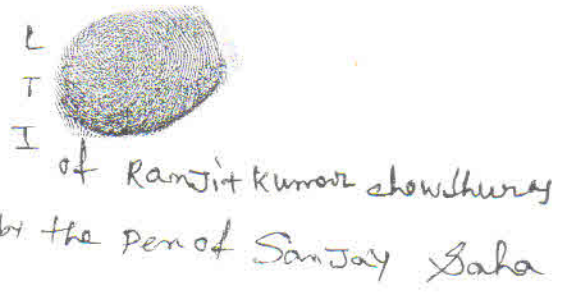 L
T
I
of Ranjit Kumar chowdhury
by the pen of Sanjay Saha